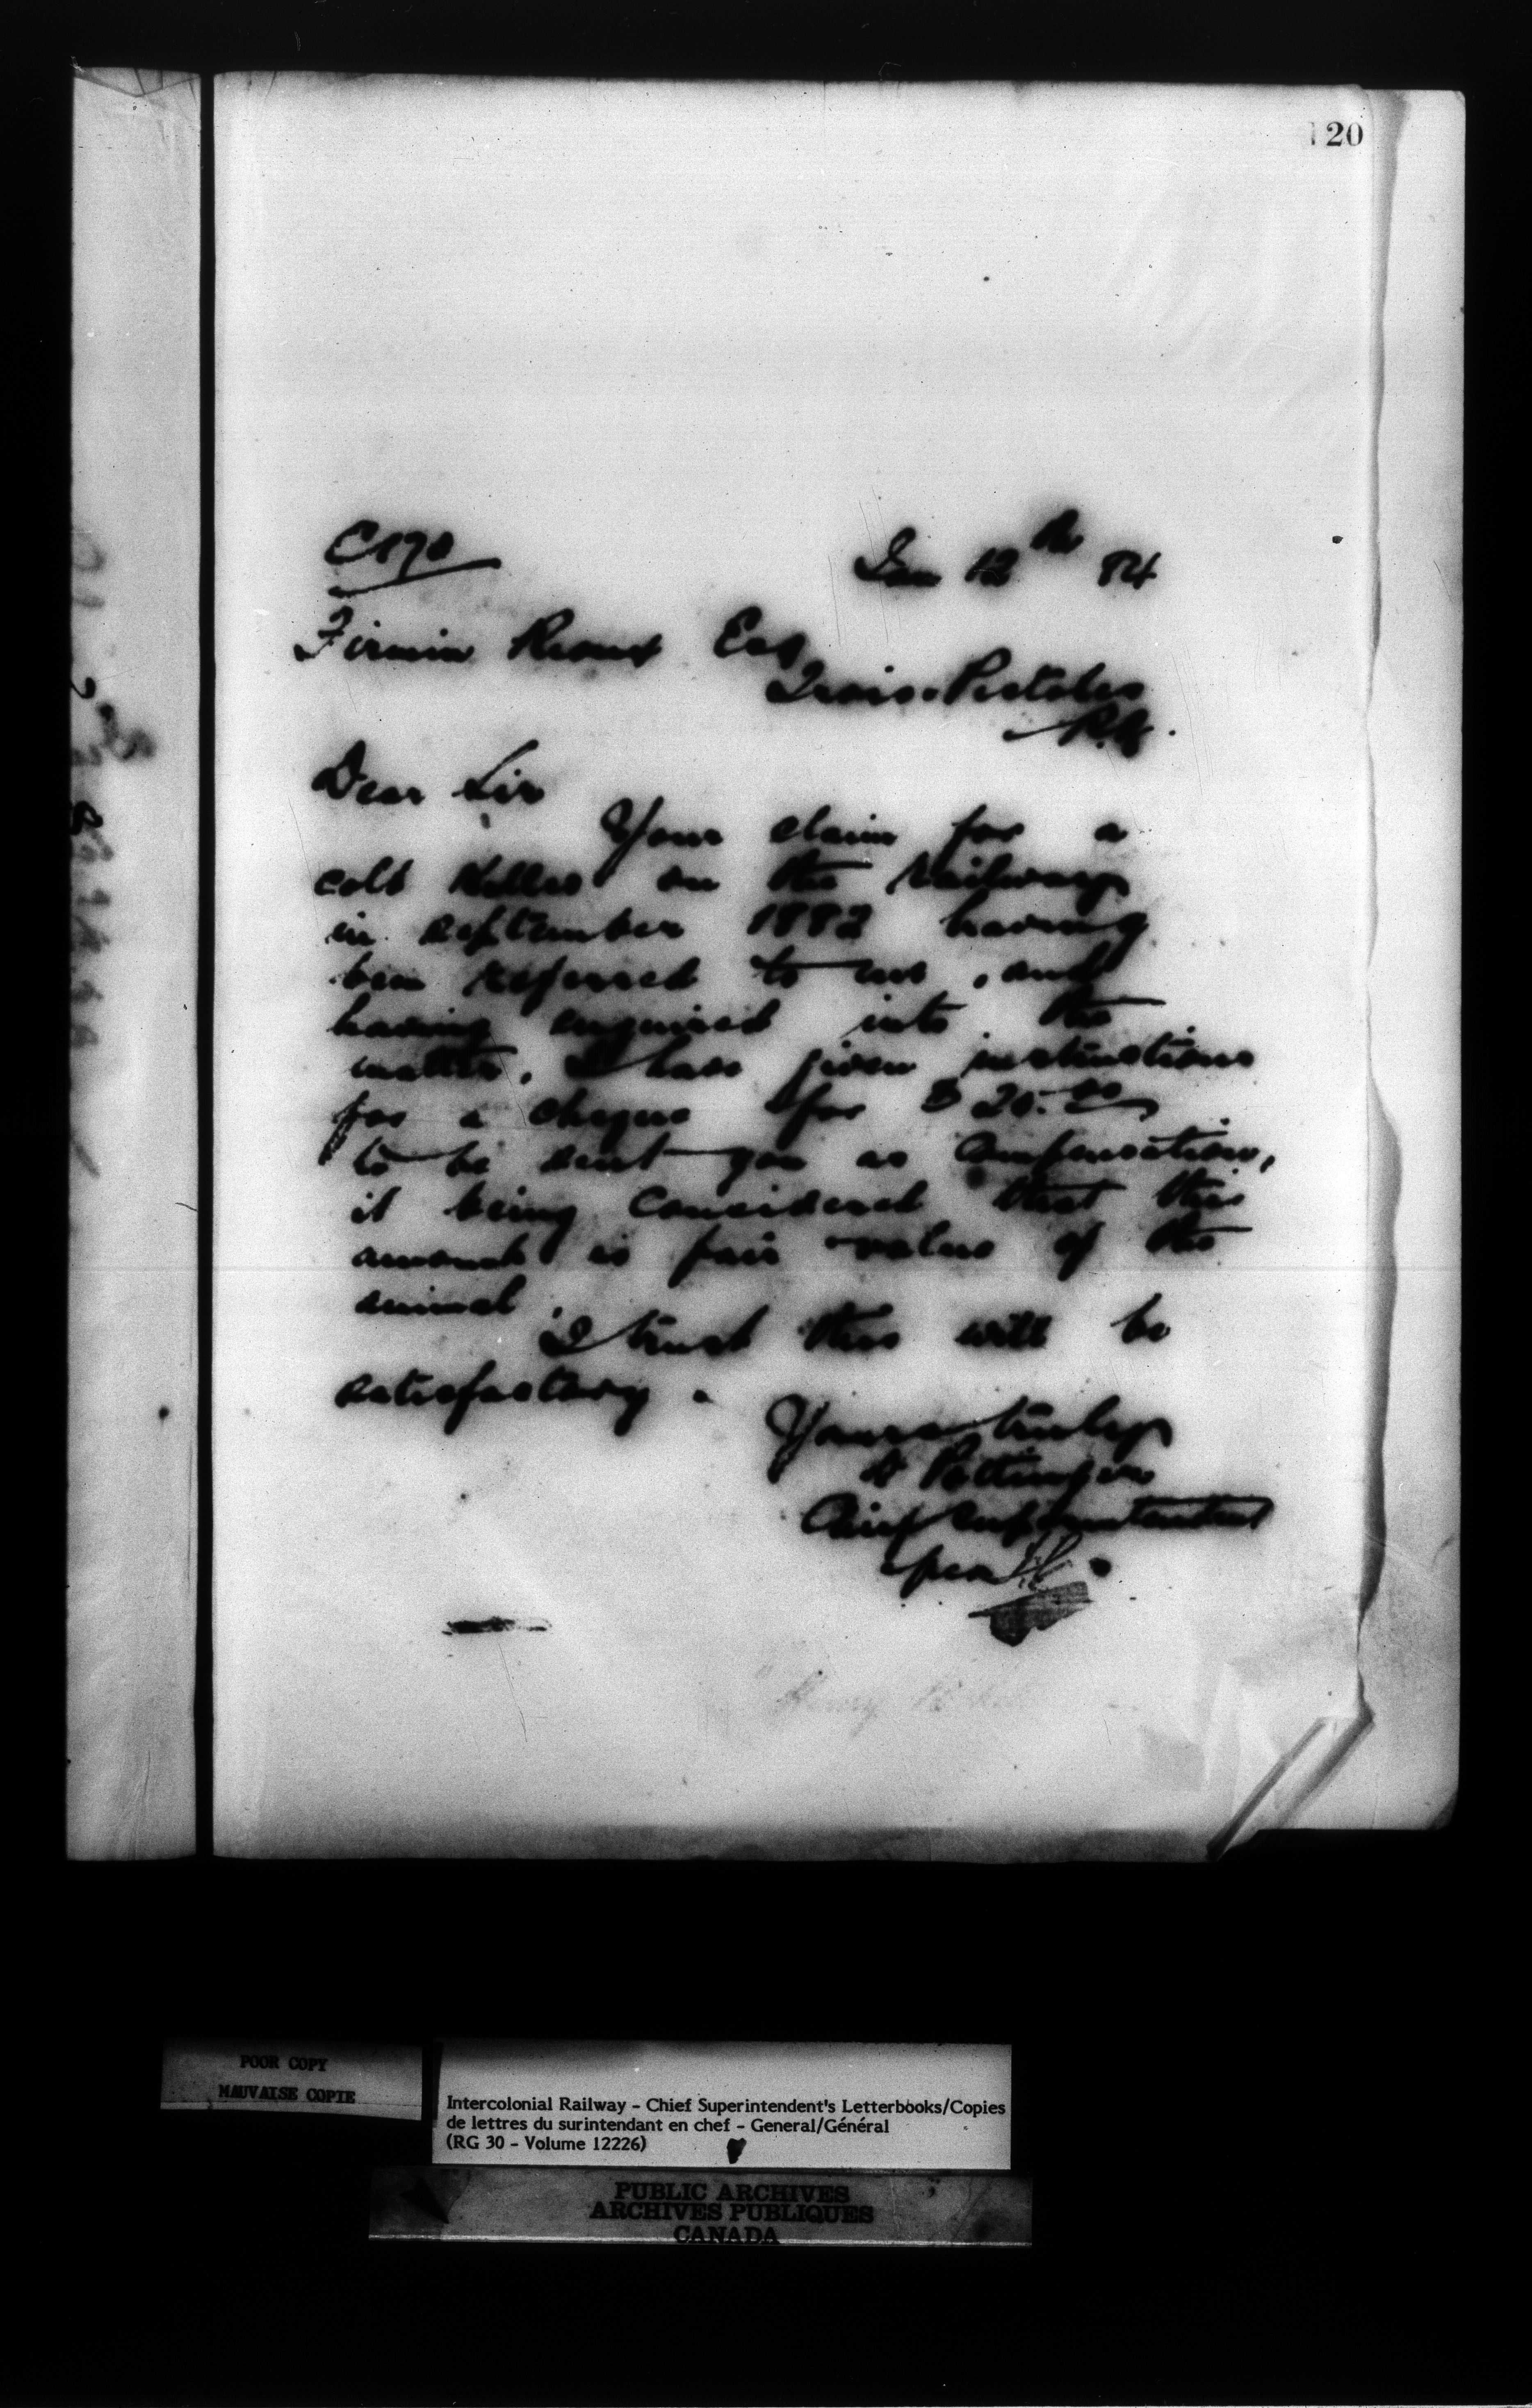 120
C170
Jan 12th 84
Firmin Rioux Esq
Trois-Pistoles
P.Q.
Dear Sir
Your claim for a
colt killed on the railway
in September 1882 having
been referred to me, and
having enquired into the
matter, I have given instructions
for a cheque for $20.00
to be sent you as compensation,
it being considered that this
amount is fair value of the
animal.
I trust this will be
satisfactory.
Yours truly
D Pottinger
Chief Superintendent
per
Henry
POOR COPY
MAUVAISE COPIE
Intercolonial Railway - Chief Superintendent's Letterbooks/Copies
de lettres du surintendant en chef - General/Général
(RG 30 - Volume 12226)
PUBLIC ARCHIVES
ARCHIVES PUBLIQUES
CANADA